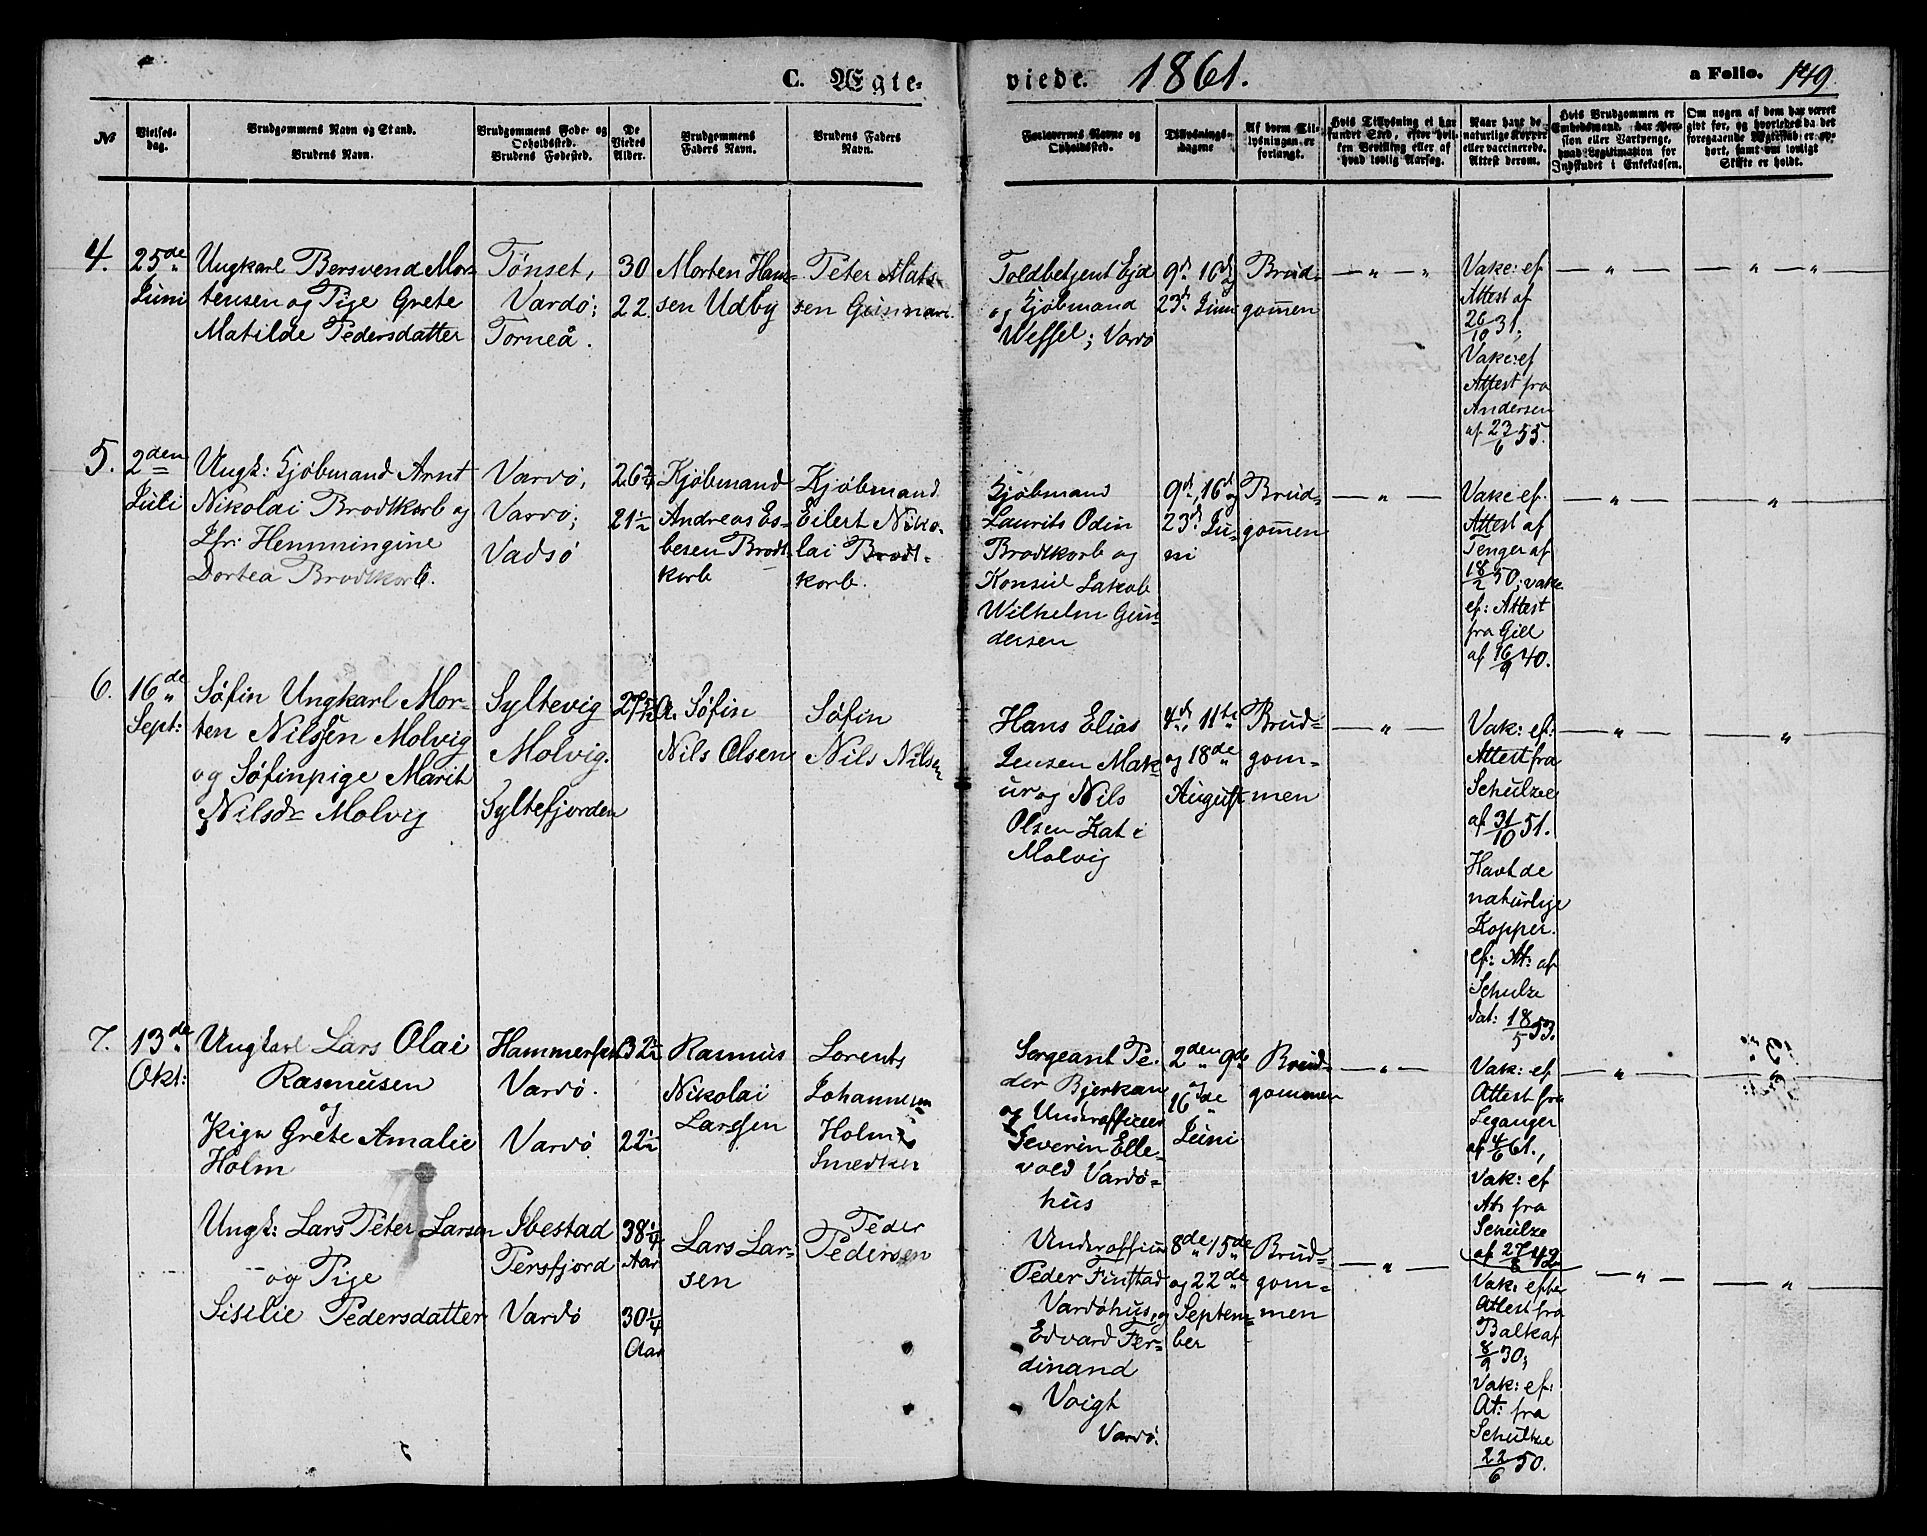 C. Ægte-
viede. 1861.
a Folio. 149
№
Vielses-
dag.
Brudgommens Navn og Stand.
Brudens Navn.
Brudgommens Føde- og
Opholdssted.
Brudens Fødested.
De
Viedes
Alder.
Brudgommens
Faders Navn.
Brudens Faders
Navn.
Forlovernes Navne og
Opholdssted.
Tillysnings-
dagene
Af hvem Til-
lysningen er
forlangt.
Hvis Tillysning ei har
fundet Sted, efter hvil-
ken Bevilling eller af
hvad lovlig Aarsag.
Naar havt de
naturlige Kopper
eller vaccinerede.
Attest derom.
Hvis Brudgommen er
Embedsmand, har Pen-
sion eller Vartpenge,
hvad Legitimation for
Indskudet i Enkekassen.
Om nogen af dem har været
gift før, og hvorledes da det
foregaaende Ægteskab er op-
hørt, samt om lovligt
Skifte er holdt.
4.
25de
Juni
Ungkarl Bersvend Mor-
tensen og Pige Grete
Matilde Pedersdatter
Tönset,
Vardö;
Torneå.
30
22.
Morten Han-
sen Udby
Peter Mats-
sen Gunnari
Toldbetjent Ejde
og Kjöbmand
Wessel; Vardö
9de, 16de og
23de Juni
Brud-
gommen
Vake: ef
Attest af
26/10 31;
Vake: ef
Attest fra
Andersen
af 23/6 55.
5.
2den
Juli
Ungk: Kjöbmand Arnt
Nikolai Brodtkorb og
Jfr: Hemmingine
Dortea Brodtkorb.
Vardö,
Vardö;
Vadsö
26 3/4
21 1/2
Kjöbmand
Andreas Es-
besen Brodt-
korb
Kjöbmand
Eilert Niko-
lai Brodt-
korb.
Kjöbmand
Laurits Odin
Brodtkorb og
Konsul Jakob
Wilhelm Gun-
dersen
9de, 16de og
23de Ju-
ni
Brud-
gommen
Vake ef.
Attest af
Tenger af
18/2 50; vake
ef: Attest
fra Gill
af 16/9 40.
6.
16de
Sept:
Söfin Ungkarl Mor-
ten Nilssen Molvig
og Söfinpige Marit
Nilsdr Molvig
Syltevig
Molvig.
Syltefjorden
Söfin
Nils Olsen
Söfin
Nils Nilsen
Hans Elias
Jensen Mak-
ur og Nils
Olsen Kat i
Molvig
4de, 11te
og 18de
August
Brud-
gom-
men
Vak: ef:
Attest fra
Schulze
af 31/10 51.
Havt de
naturlige
Kopper.
ef: At: af
Schulze
dat: 18/5 53.
7.
13de
Okt:
Ungkarl Lars Olai
Rasmusen
og
Pige Grete Amalie
Holm
Hammerfest
Vardö.
Vardö
32 1/2
22 1/2
Rasmus
Nikolai
Larssen
Lorents
Johannesen
Holm
Smedker
Sergeant Pe-
der Bjerkan
og Underofficer
Severin Elle-
vold Vardö-
hus
2den, 9de
og
16de
Juni
Brud-
gommen
Vak: ef
Attest fra
Leganger
af 4/6 61.,
Vak: ef
At: fra
Schulze
af 27/8 42
Ungk: Lars Peter Larsen
og Pige
Siselie Pedersdatter
Ibestad
Persfjord
Vardö
38 1/4
Aar
30 1/4
Aar
Lars Lar-
sen
Peder
Pedersen
Underofficer
Peder Finstad
Vardöhus, og
Edvard Fer-
dinand
Voigt
Vardö.
8de, 15de
og 22de
Septem-
ber
Brud-
gom-
men
Vak: efter
Attest fra
Balk af
8/9 30;
Vak: ef:
At: fra
Schultze
22/6 50.